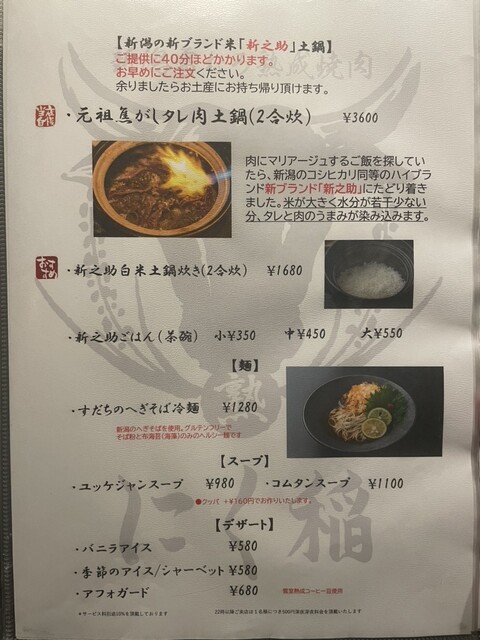 【新潟の新ブランド米「新之助」土鍋】
ご提供に40分ほどかかります。
お早めにご注文ください。
余りましたらお土産にお持ち帰り頂けます。
熟成焼肉
当店自慢
・元祖焦がしタレ肉土鍋(2合炊) ¥3600
肉にマリアージュするご飯を探してい
たら、新潟のコシヒカリ同等のハイブラ
ンド新ブランド「新之助」にたどり着き
ました。米が大きく水分が若干少ない
分、タレと肉のうまみが染み込みます。
おすすめ
・新之助白米土鍋炊き(2合炊) ¥1680
・新之助ごはん(茶碗) 小¥350 中¥450 大¥550
【麺】
熟
・すだちのへぎそば冷麺 ¥1280
新潟のへぎそばを使用。グルテンフリーで
そば粉と布海苔(海藻)のみのヘルシー麺です
【スープ】
・ユッケジャンスープ ¥980 ・コムタンスープ ¥1100
●クッパ +¥160円でお作りいたします。
にく稲
【デザート】
・バニラアイス ¥580
・季節のアイス/シャーベット ¥580
・アフォガード ¥680 氷室熟成コーヒー豆使用
*サービス料別途10%を頂戴しております
22時以降ご来店は1名様につき500円深夜席料金を頂戴いたします